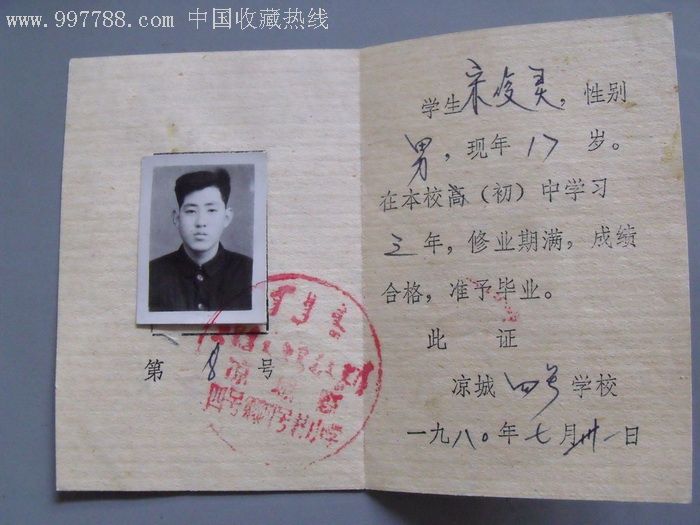 www.997788.com 中国收藏热线
第 8 号
凉城县
学生宋俊灵，性别
男，现年 17 岁。
在本校高（初）中学习
三年，修业期满，成绩
合格，准予毕业。
此 证
凉城四号学校
一九八〇年七月卅一日